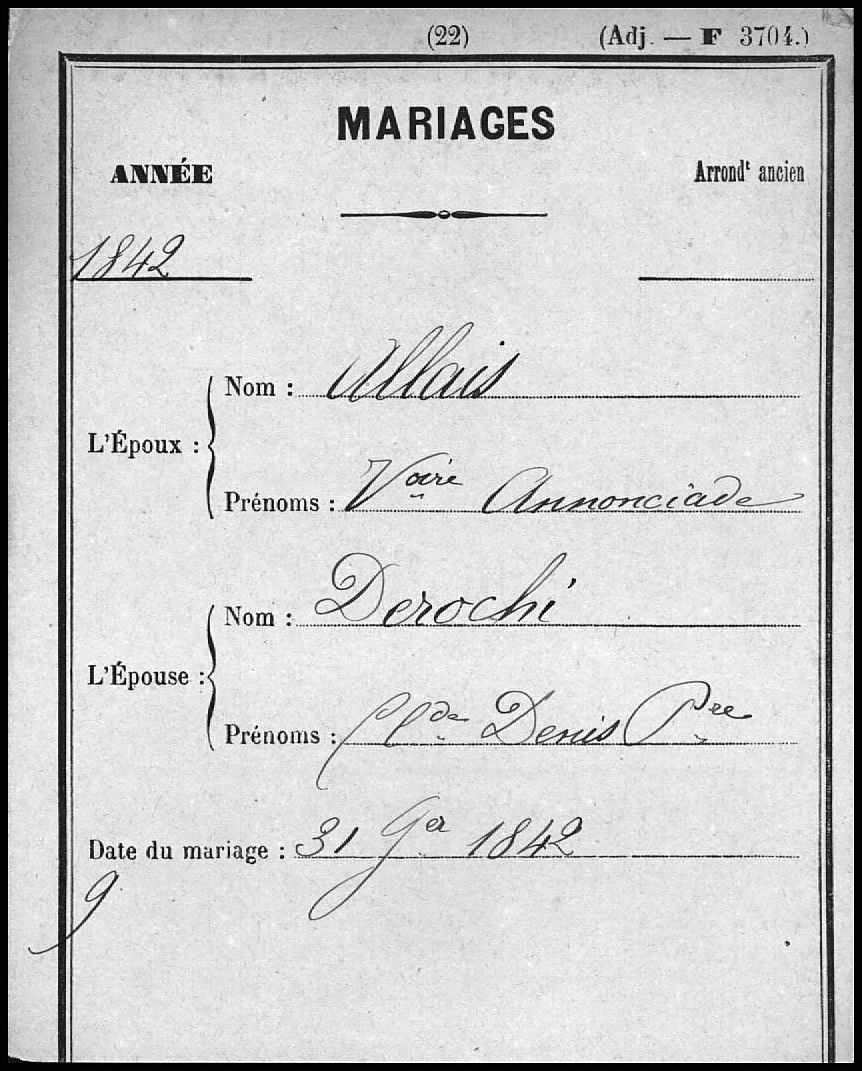 (22) (Adj. — F 3704.)
MARIAGES
ANNÉE Arrondt ancien
1842
L'Époux :
Nom : Allais
Prénoms : Voire Annonciade
L'Épouse :
Nom : Derochi
Prénoms : Clde Denis Pre
Date du mariage : 31 Jer 1842
9